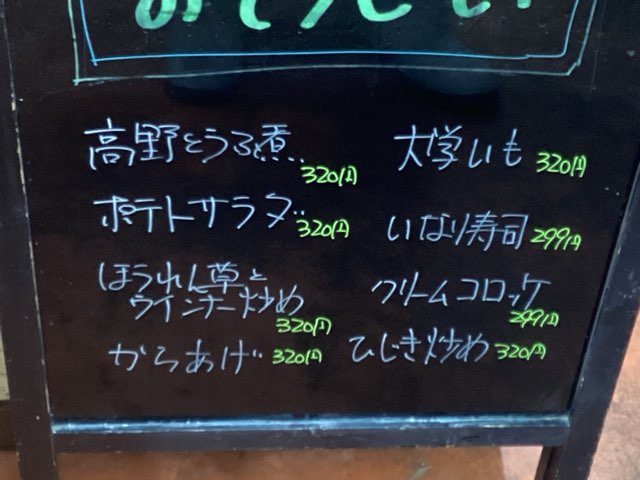 おそうざい
高野とうふ煮
320円
ポテトサラダ
320円
ほうれん草と
ウインナー炒め
320円
からあげ
320円
大学いも
320円
いなり寿司
299円
クリームコロッケ
299円
ひじき炒め
320円